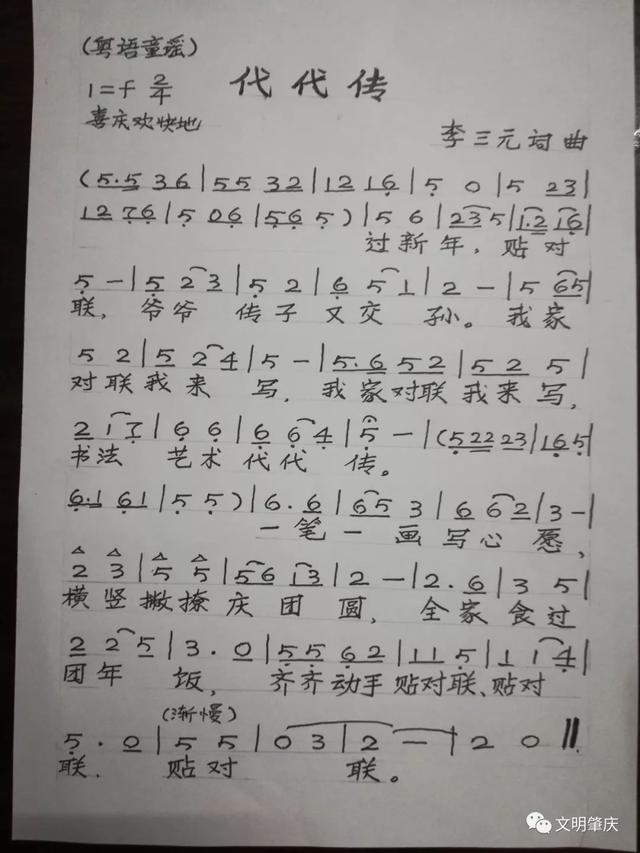 (粤语童谣)
1=f 2/4 代代传
喜庆欢快地
李三元词曲
(5.5 36|55 32|12 16|5 0|5 23|
12 76|5 06|56 5)|5 6|23 5|1.2 16|
过新年,贴对
5 -|5 23|5 2|6 5 1|2 -|5 65|
联,爷爷传子又交孙。我家
5 2|5 24|5 -|5.6 52|52 5|
对联我来写,我家对联我来写,
2 17|6 6|6 64|5 -|(5 22 23|165|
书法艺术代代传。
6.1 61|5 5)|6.6|65 3|6 62|3-|
一笔一画写心愿,
2 3|5 5|56 13|2 -|2.6|3 5|
横竖撇撩庆团圆,全家食过
2 25|3.0|55 62|11 5|1 14|
团年饭,齐齐动手贴对联、贴对
(渐慢)
5.0|5 5|0 3|2 -|2 0‖
联.贴对联。
文明肇庆